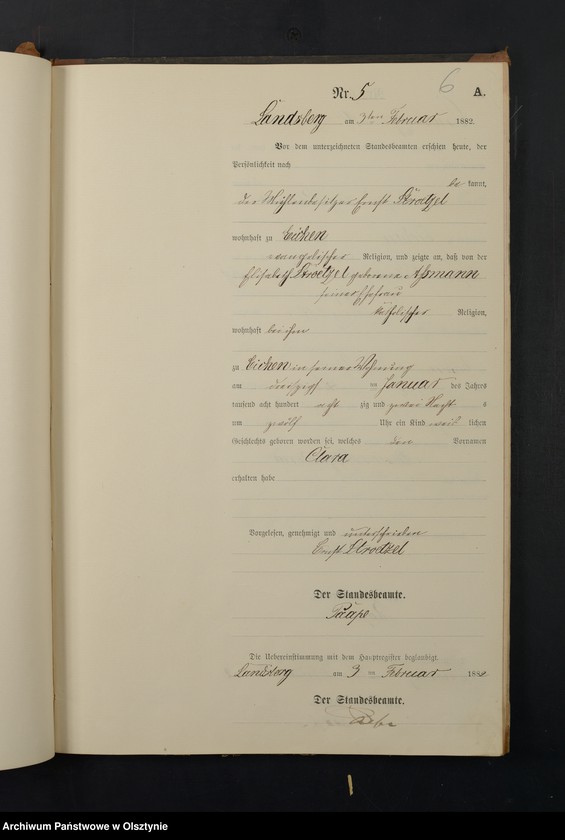 6
Nr. 5 A.
Landsberg am 3ten Februar 1882.
Vor dem unterzeichneten Standesbeamten erschien heute, der
Persönlichkeit nach
be kannt,
der Mühlenbesitzer Ernst Stroetzel
wohnhaft zu Eichen
evangelischer Religion, und zeigte an, daß von der
Elisabeth Stroetzel geborene Aßmann
seiner Ehefrau
katholischer Religion,
wohnhaft bei ihm
zu Eichen in seiner Wohnung
am ten Januar des Jahres
tausend acht hundert acht zig und zwei Nachts
um zwölf Uhr ein Kind weib lichen
Geschlechts geboren worden sei, welches den Vornamen
Clara
erhalten habe
Vorgelesen, genehmigt und unterschrieben
Ernst Stroetzel
Der Standesbeamte.
Die Uebereinstimmung mit dem Hauptregister beglaubigt.
Landsberg am 3 ten Februar 1882
Der Standesbeamte.
Archiwum Państwowe w Olsztynie